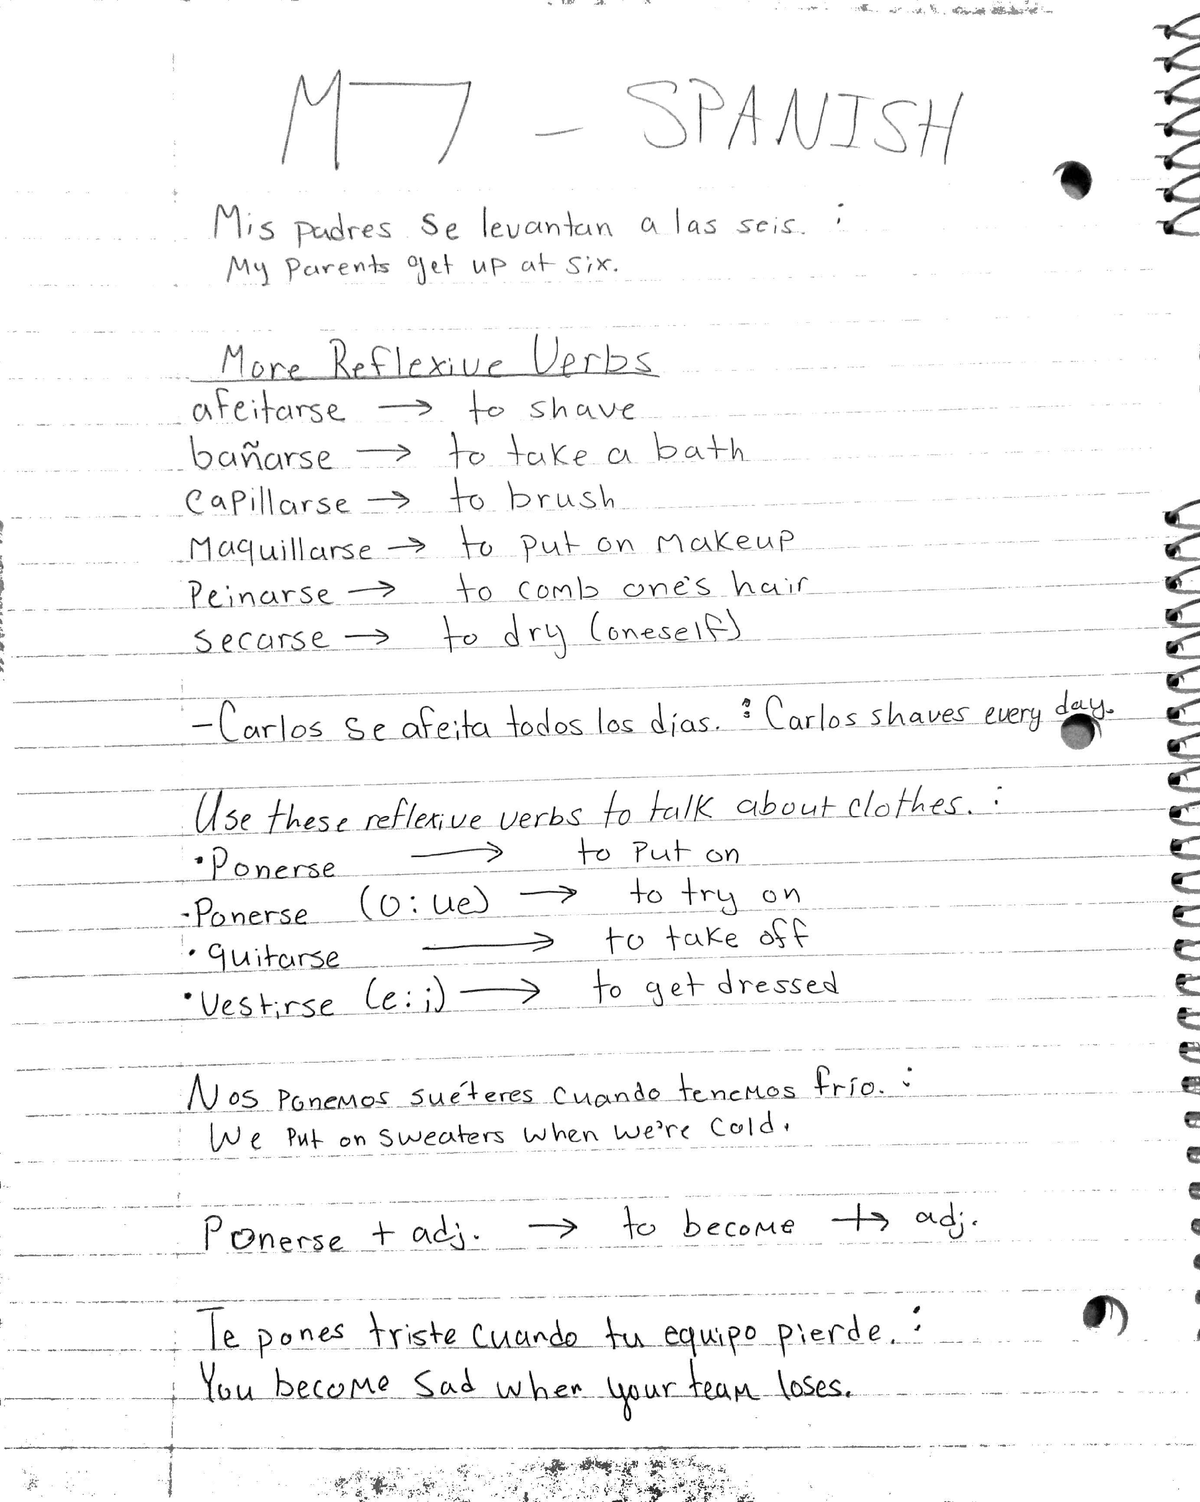 M7 - SPANISH
Mis padres se levantan a las seis. :
My parents get up at six.
More Reflexive Verbs
afeitarse → to shave
bañarse → to take a bath
capillarse → to brush
Maquillarse → to put on makeup
Peinarse → to comb one's hair
secarse → to dry (oneself)
-Carlos se afeita todos los días. : Carlos shaves every day.
Use these reflexive verbs to talk about clothes. :
•Ponerse → to put on
-Ponerse (o:ue) → to try on
•quitarse → to take off
•Vestirse (e:i) → to get dressed
Nos ponemos suéteres cuando tenemos frío. :
We put on sweaters when we're cold.
Ponerse + adj. → to become + adj.
Te pones triste cuando tu equipo pierde. :
You become sad when your team loses.